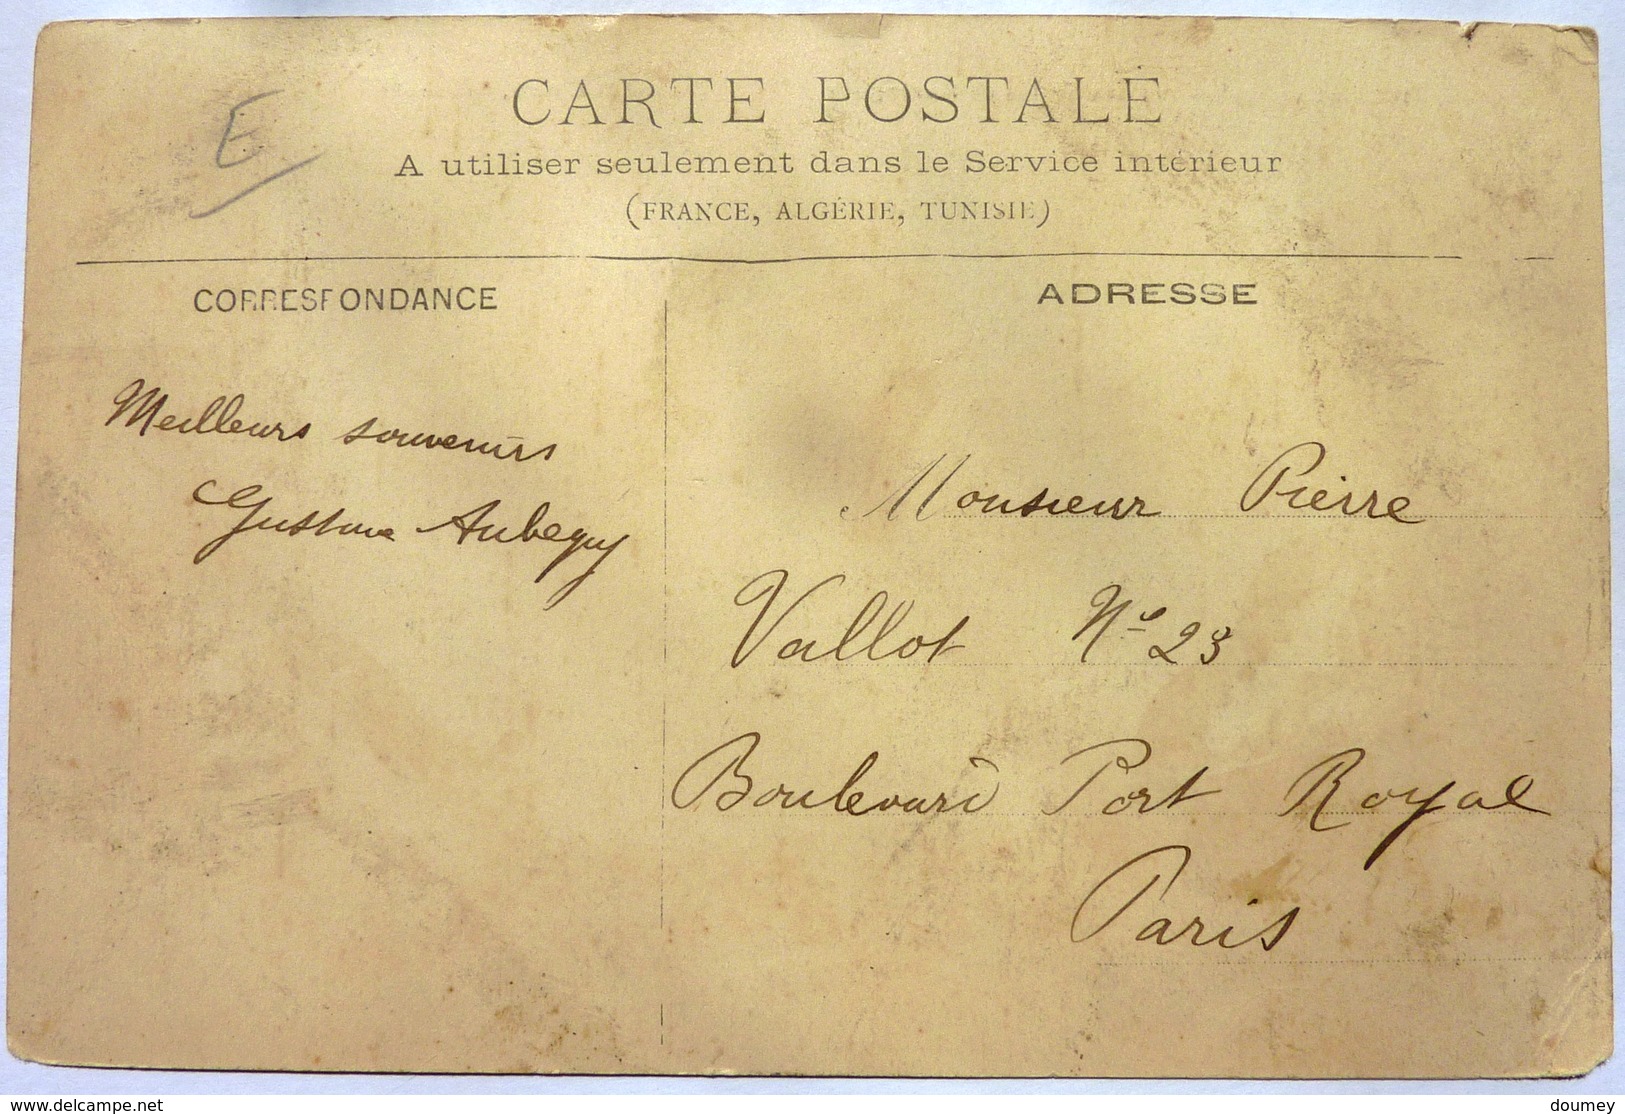 E
CARTE POSTALE
A utiliser seulement dans le Service intérieur
(FRANCE, ALGÉRIE, TUNISIE)
CORRESPONDANCE
ADRESSE
Meilleurs souvenirs
Gustave Aubeguy
Monsieur Pierre
Vallot No 23
Boulevard Port Royal
Paris
http://delcampe.net
doumey